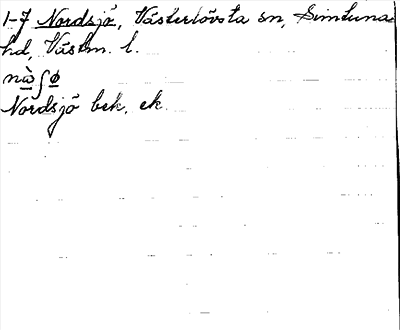 1-7 Nordsjö, Västerlövsta sn, Simtuna
hd, Västm. l.
nὼʃφ
Nordsjö bek. ek.